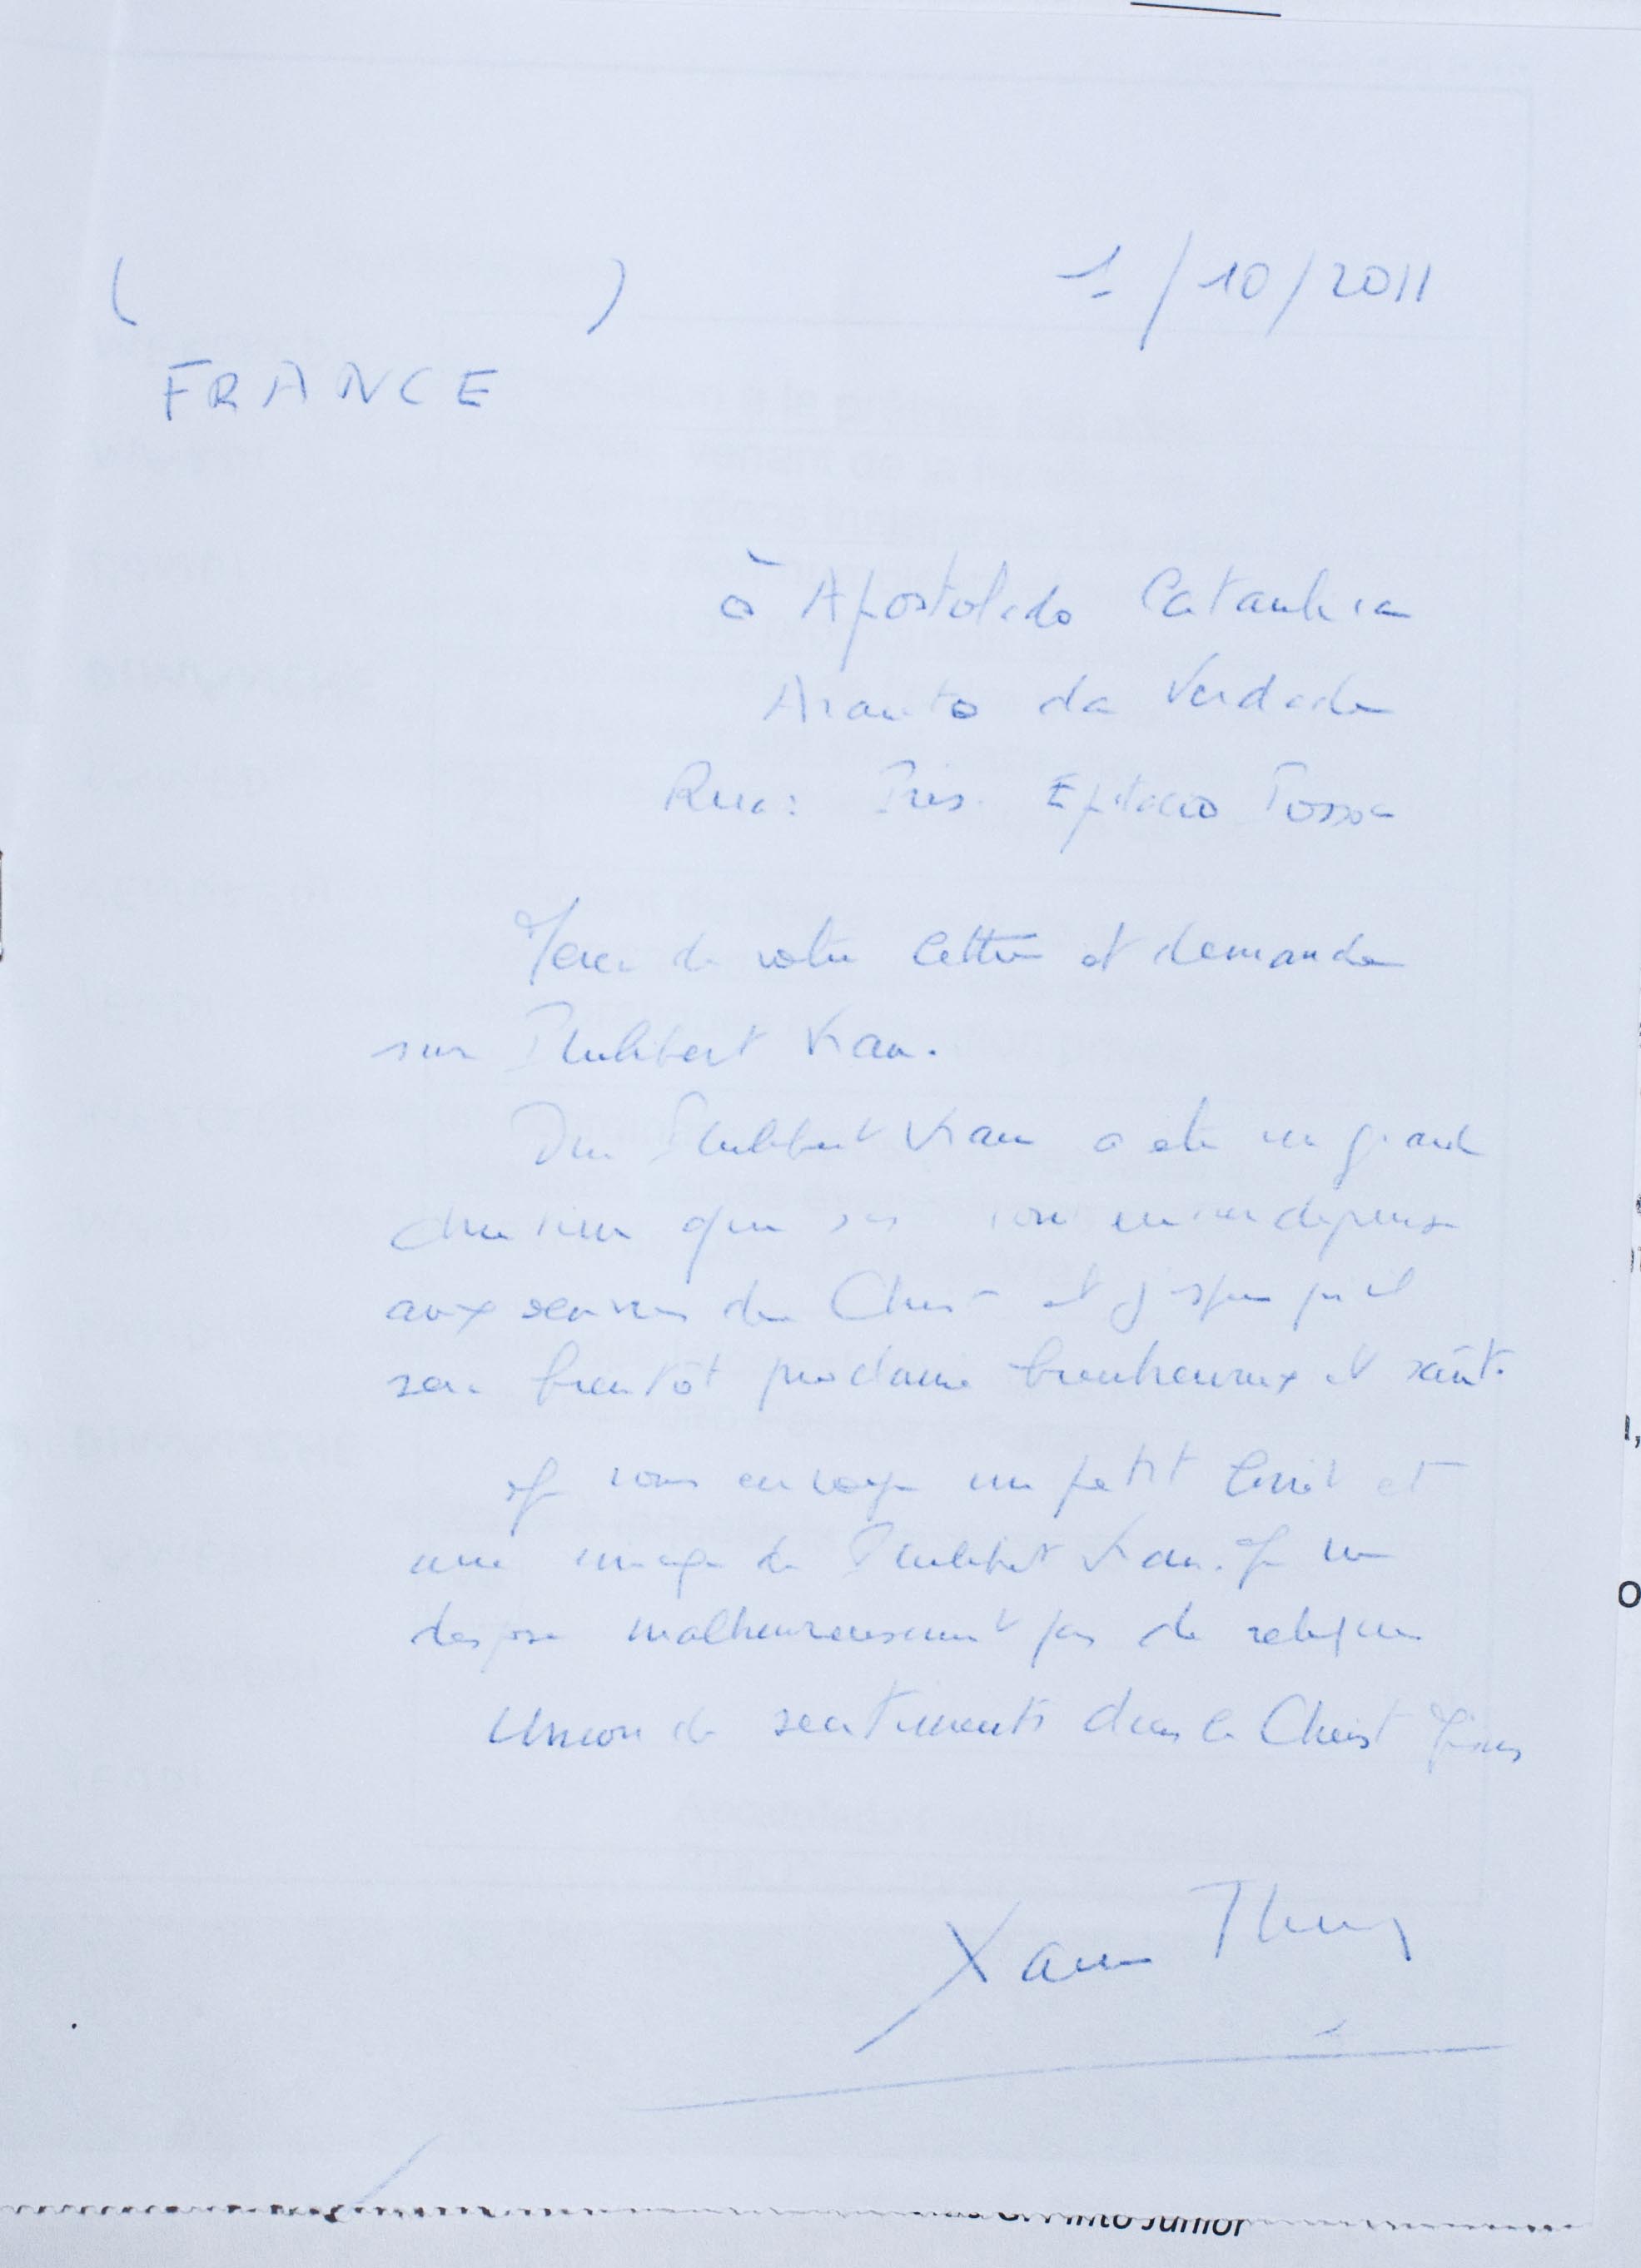 ( ) 1/10/2011
FRANCE
à Apostolado
Arauto da Verdade
Rua: Pres. Epitacio Pessoa
Merci de votre lettre et demande
sur Philibert Vrau.
Philibert Vrau a été un grand
chrétien
aux services du Christ et j'espère qu'il
sera bientôt proclamé bienheureux et saint.
Je vous envoye un petit livret et
une image de Philibert Vrau. Je ne
dispose malheureusement pas de reliques
Union de sentiments dans le Christ Jésus
Junior